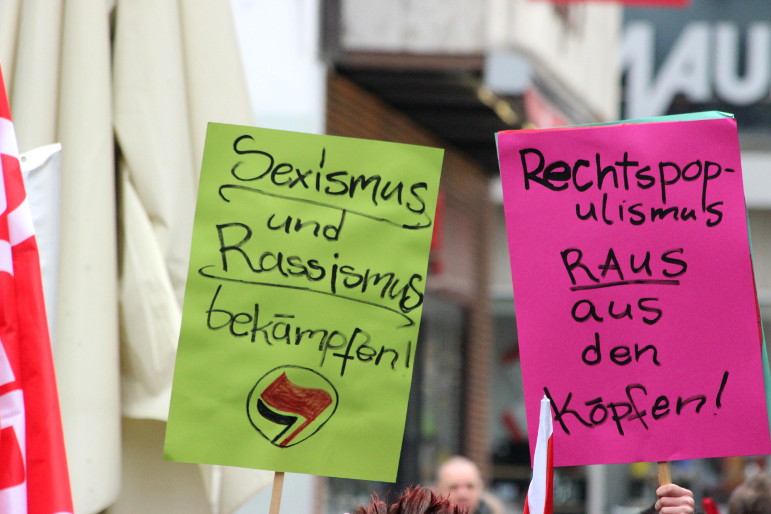 Sexismus
und
Rassismus
bekämpfen!
Rechtspop-
ulismus
RAUS
aus
den
Köpfen!
MAU